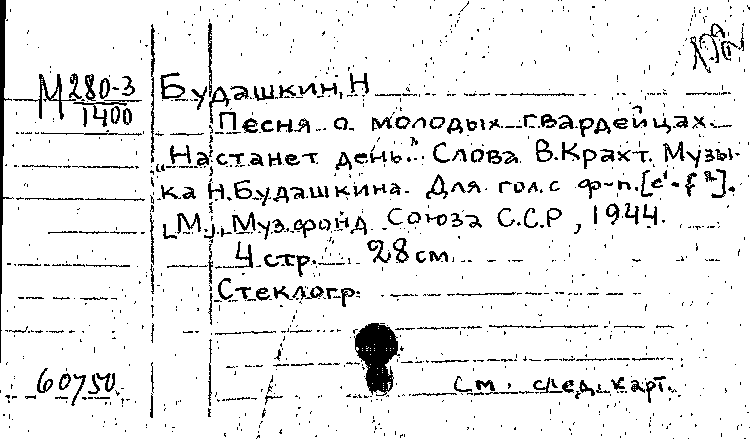 М 280-3
1400
Будашкин, Н
Песня о молодых гвардейцах.
„Настанет день." Слова В.Крахт. Музы-
ка Н.Будашкина. Для гол. с ф-п. [e¹-f²].
[М], Муз.фонд Союза С.С.Р, 1944.
4 стр. 28 см
Стеклогр.
60750.
См. след. карт.